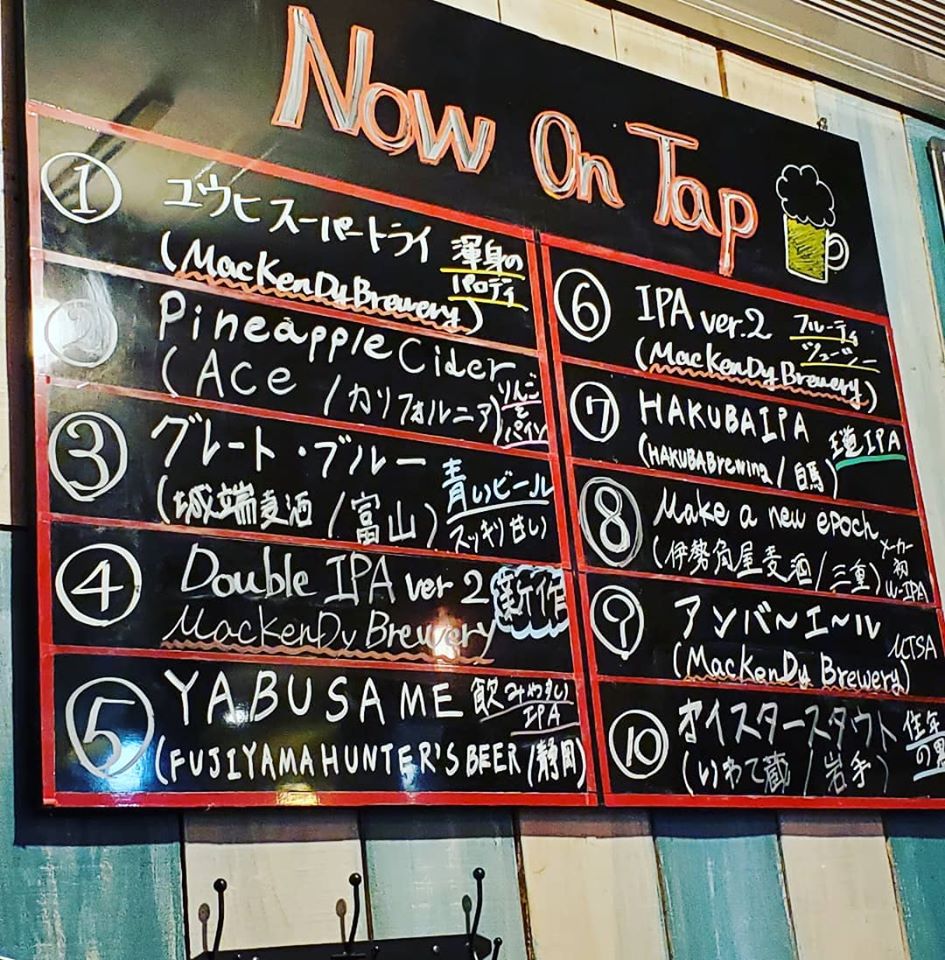 Now On Tap
① ユウヒスーパートライ 渾身の
パロディ
(MacKenDy Brewery)
② Pineapple Cider
(Ace / カリフォルニア) りんご
と
パイン
③ グレート・ブルー 青いビール
(城端麦酒 / 富山) スッキリ甘い
④ Double IPA ver 2 新作
MacKenDy Brewery
⑤ YABUSAME 飲みやすい
IPA
(FUJIYAMA HUNTER'S BEER / 静岡)
⑥ IPA ver.2 フルーティ
ジューシー
(MacKenDy Brewery)
⑦ HAKUBA IPA 王道IPA
(HAKUBA Brewing / 白馬)
⑧ Make a new epoch メーカー
初
W-IPA
(伊勢角屋麦酒 / 三重)
⑨ アンバ〜エ〜ル
(MacKenDy Brewery)
⑩ オイスタースタウト
(いわて蔵 / 岩手)